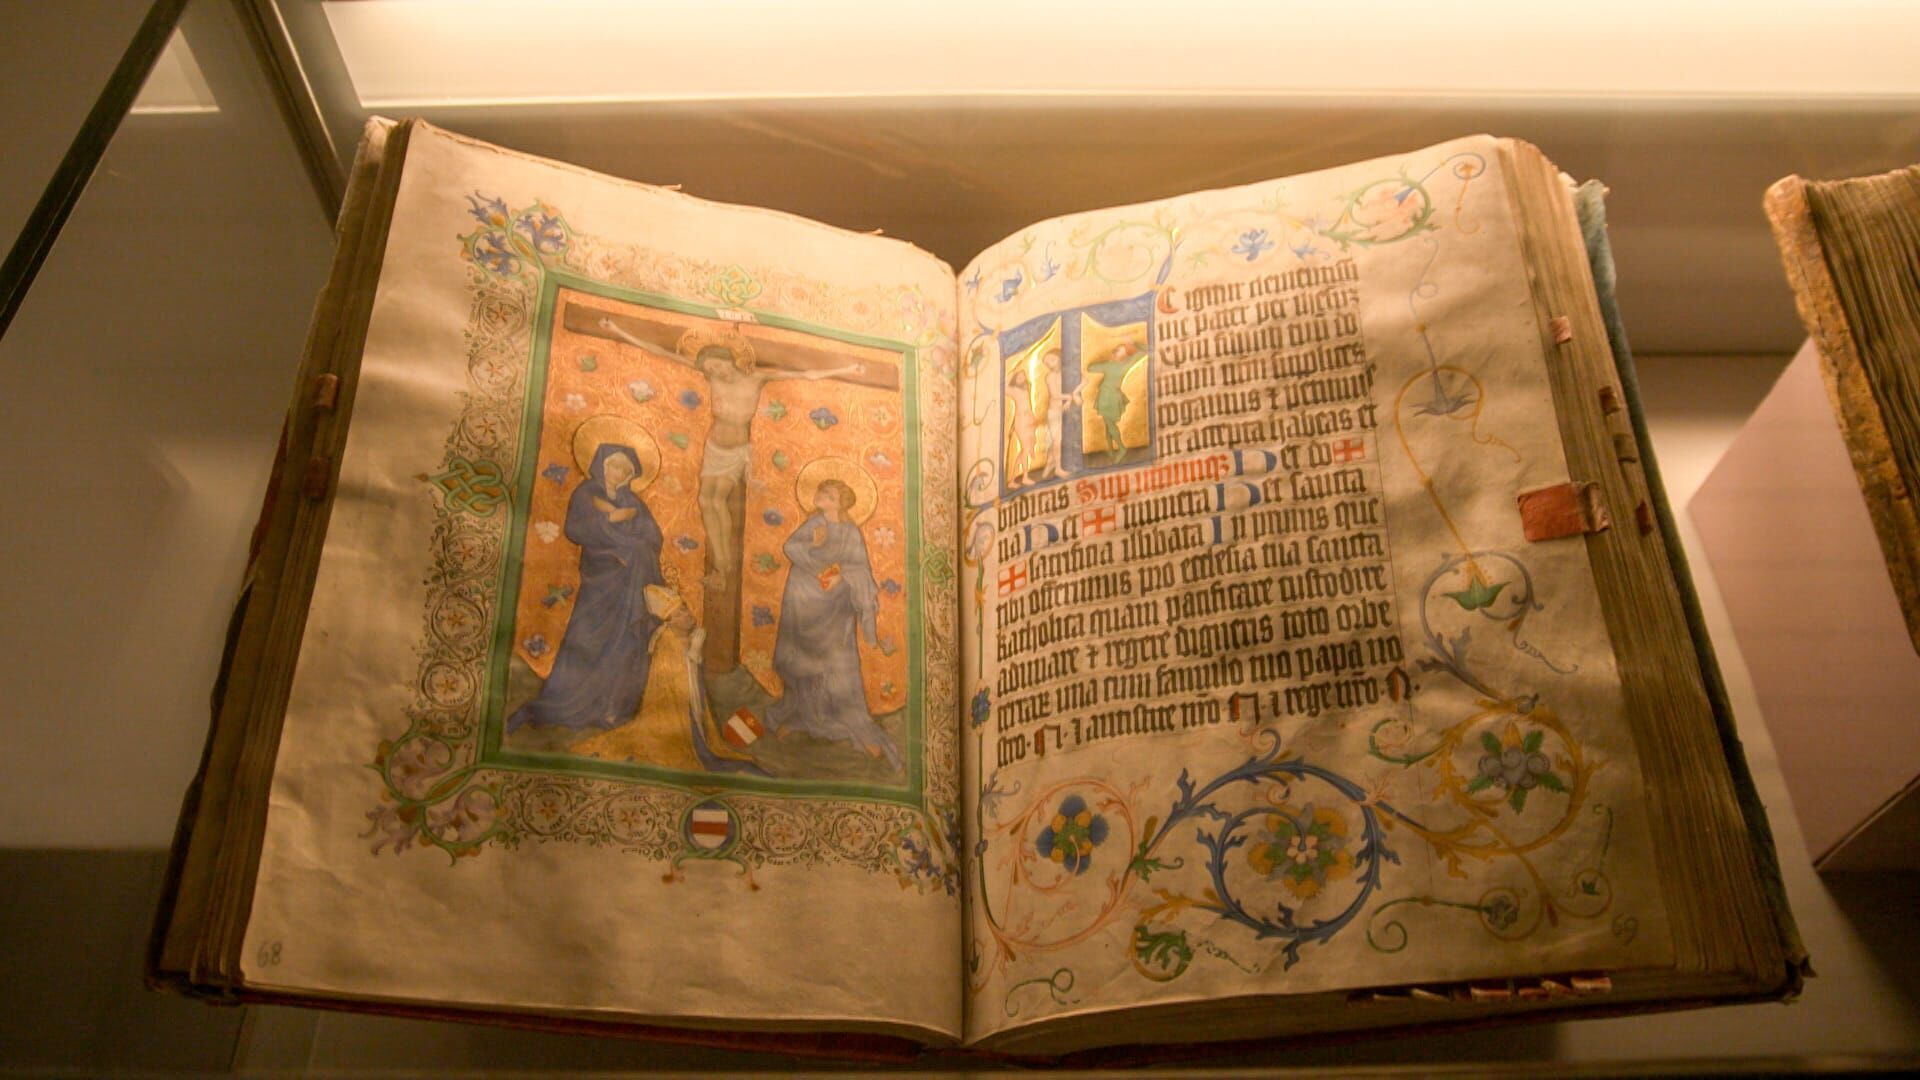 INRI
T
E igitur clementissi
me pater per ihesum
xpm filium tuum do
minum nrm supplices
rogamus ⁊ petimus
ut accepta habeas et
benedicas Sup utrumqz Hec do✠
na Hec ✠ munera Hec sancta
✠ sacrificia illibata In primis que
tibi offerimus pro ecclesia tua sancta
katholica quam pacificare custodire
adunare ⁊ regere digneris toto orbe
terrarz una cum famulo tuo papa no
stro · N · ⁊ antistite nro N ⁊ rege nro · N ·
68
69